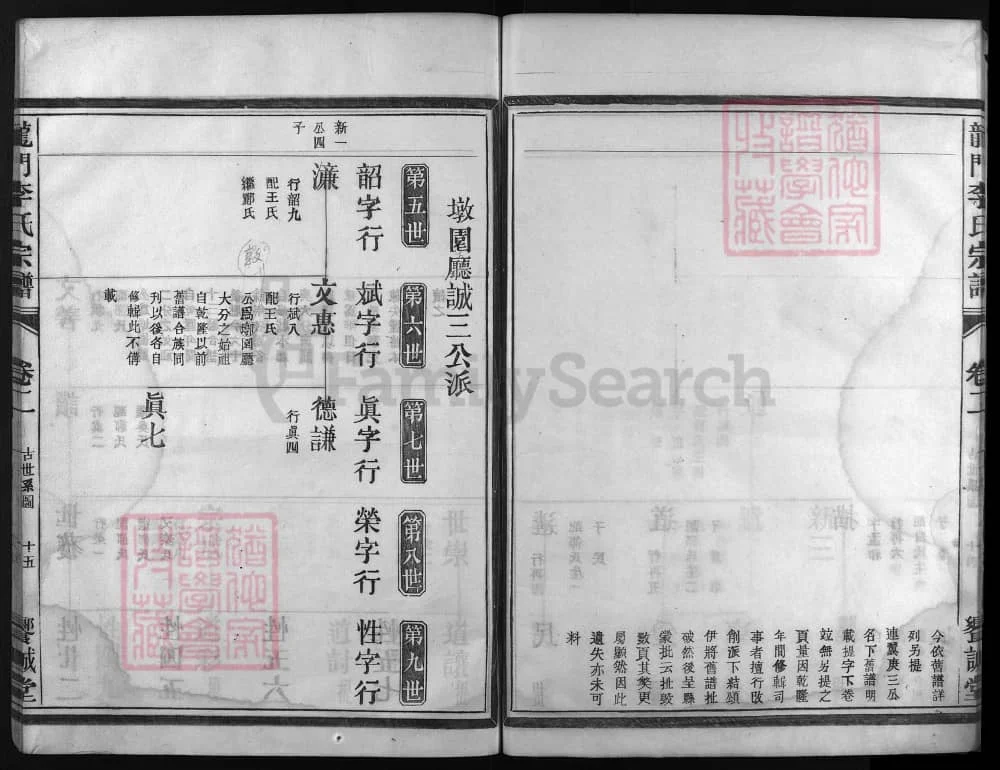 龍門李氏宗譜
卷二
饗誠堂
今依舊譜詳
列另提
連翼庚三公
名下舊譜明
載提字下卷
竝無另提之
頁量因乾隆
年間修輯司
事者擅行改
創派下粘頌
伊將舊譜扯
破然後呈縣
蒙批云扯毀
數頁其筴更
屬顯然因此
遺失亦未可
料
墩園廳誠三公派
第五世
韶字行
第六世
斌字行
第七世
眞字行
第八世
榮字行
第九世
性字行
新一
公四
子
濂
行韶九
配王氏
繼鄭氏
文惠
行斌八
配王氏
公爲墩園廳
大分之始祖
自乾隆以前
舊譜合族同
刋以後各自
修輯此不僃
載
德謙
行眞四
眞七
龍門李氏宗譜
卷二
古世系圖
十五
饗誠堂
FamilySearch
猶他家
譜學會
收藏
猶他家
譜學會
收藏